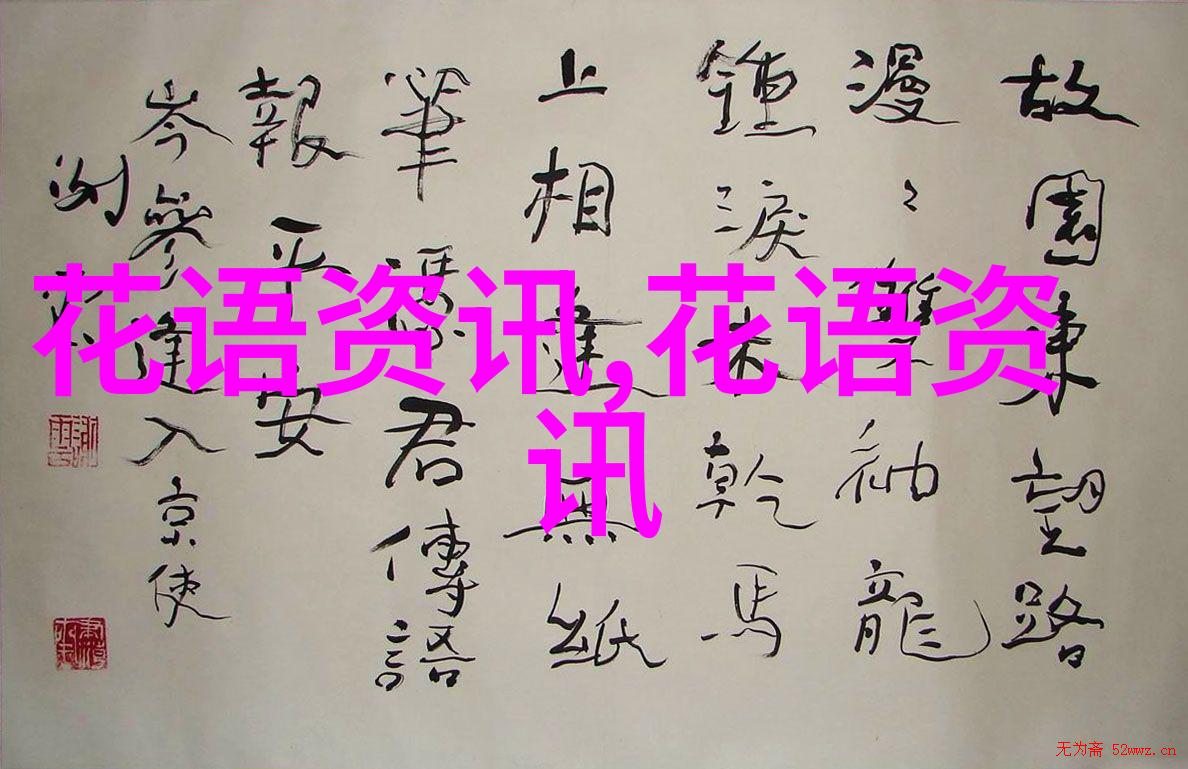 故園東望路
漫々雙袖龍
鍾淚未乾馬
上相逢無紙
筆憑君傳語
報平安
岑參逢入京使
花语资讯,花语资
讯
无为斋 52wwz.cn